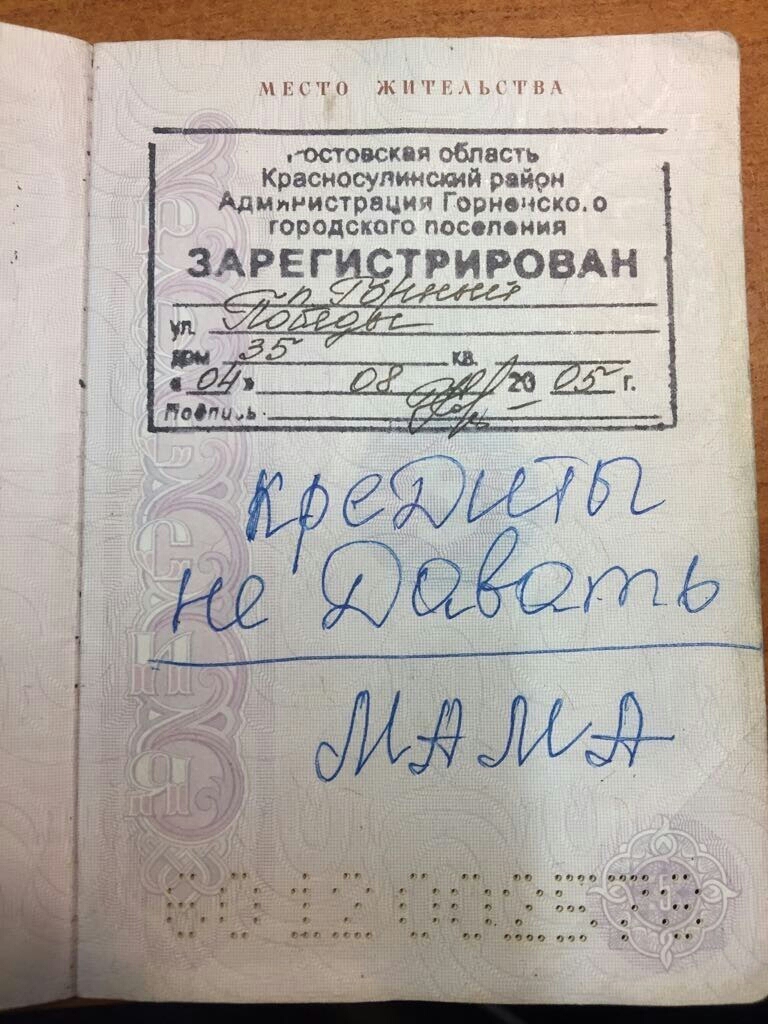 МЕСТО ЖИТЕЛЬСТВА
Ростовская область
Красносулинский район
Администрация Горненского
городского поселения
ЗАРЕГИСТРИРОВАН
п. Горный
ул. Победы
дом 35 кв.
« 04 » 08 20 05 г.
Подпись
кредиты
не давать
МАМА
5